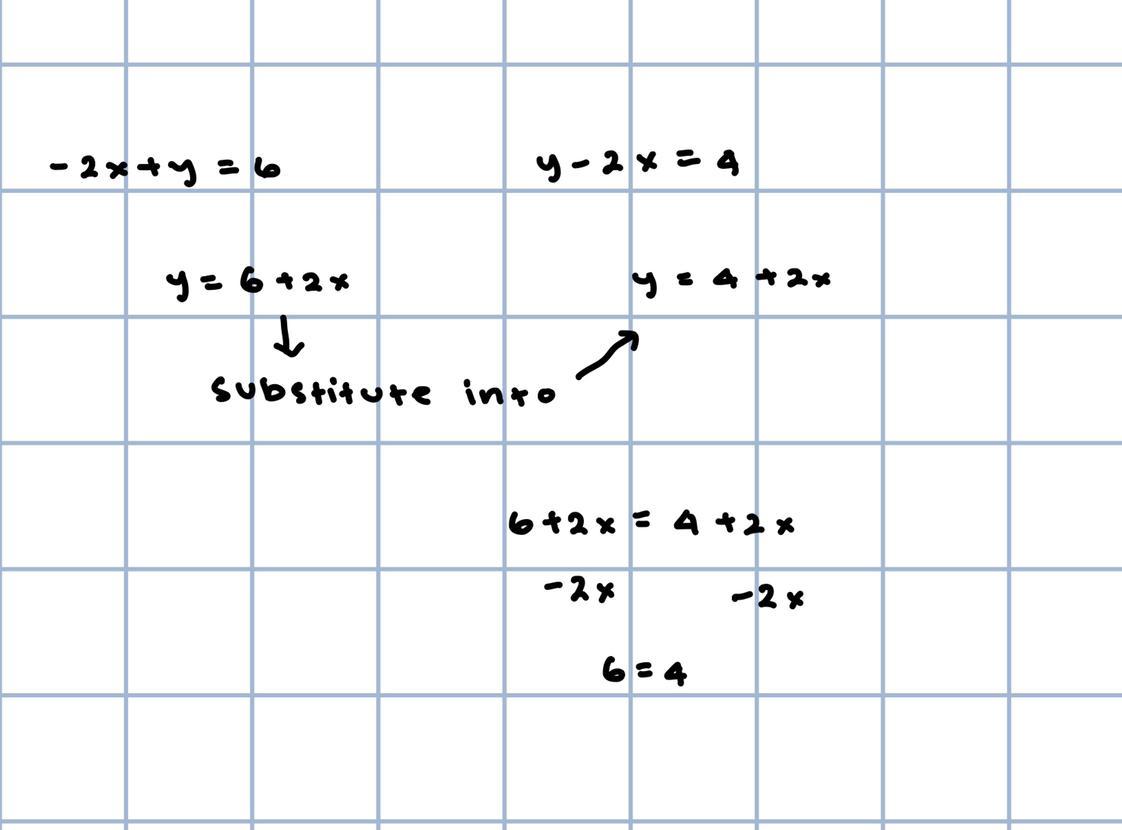 -2x+y = 6
y - 2x = 4
y = 6 +2x
y = 4 +2x
substitute into
6+2x = 4 +2x
-2x -2x
6 = 4